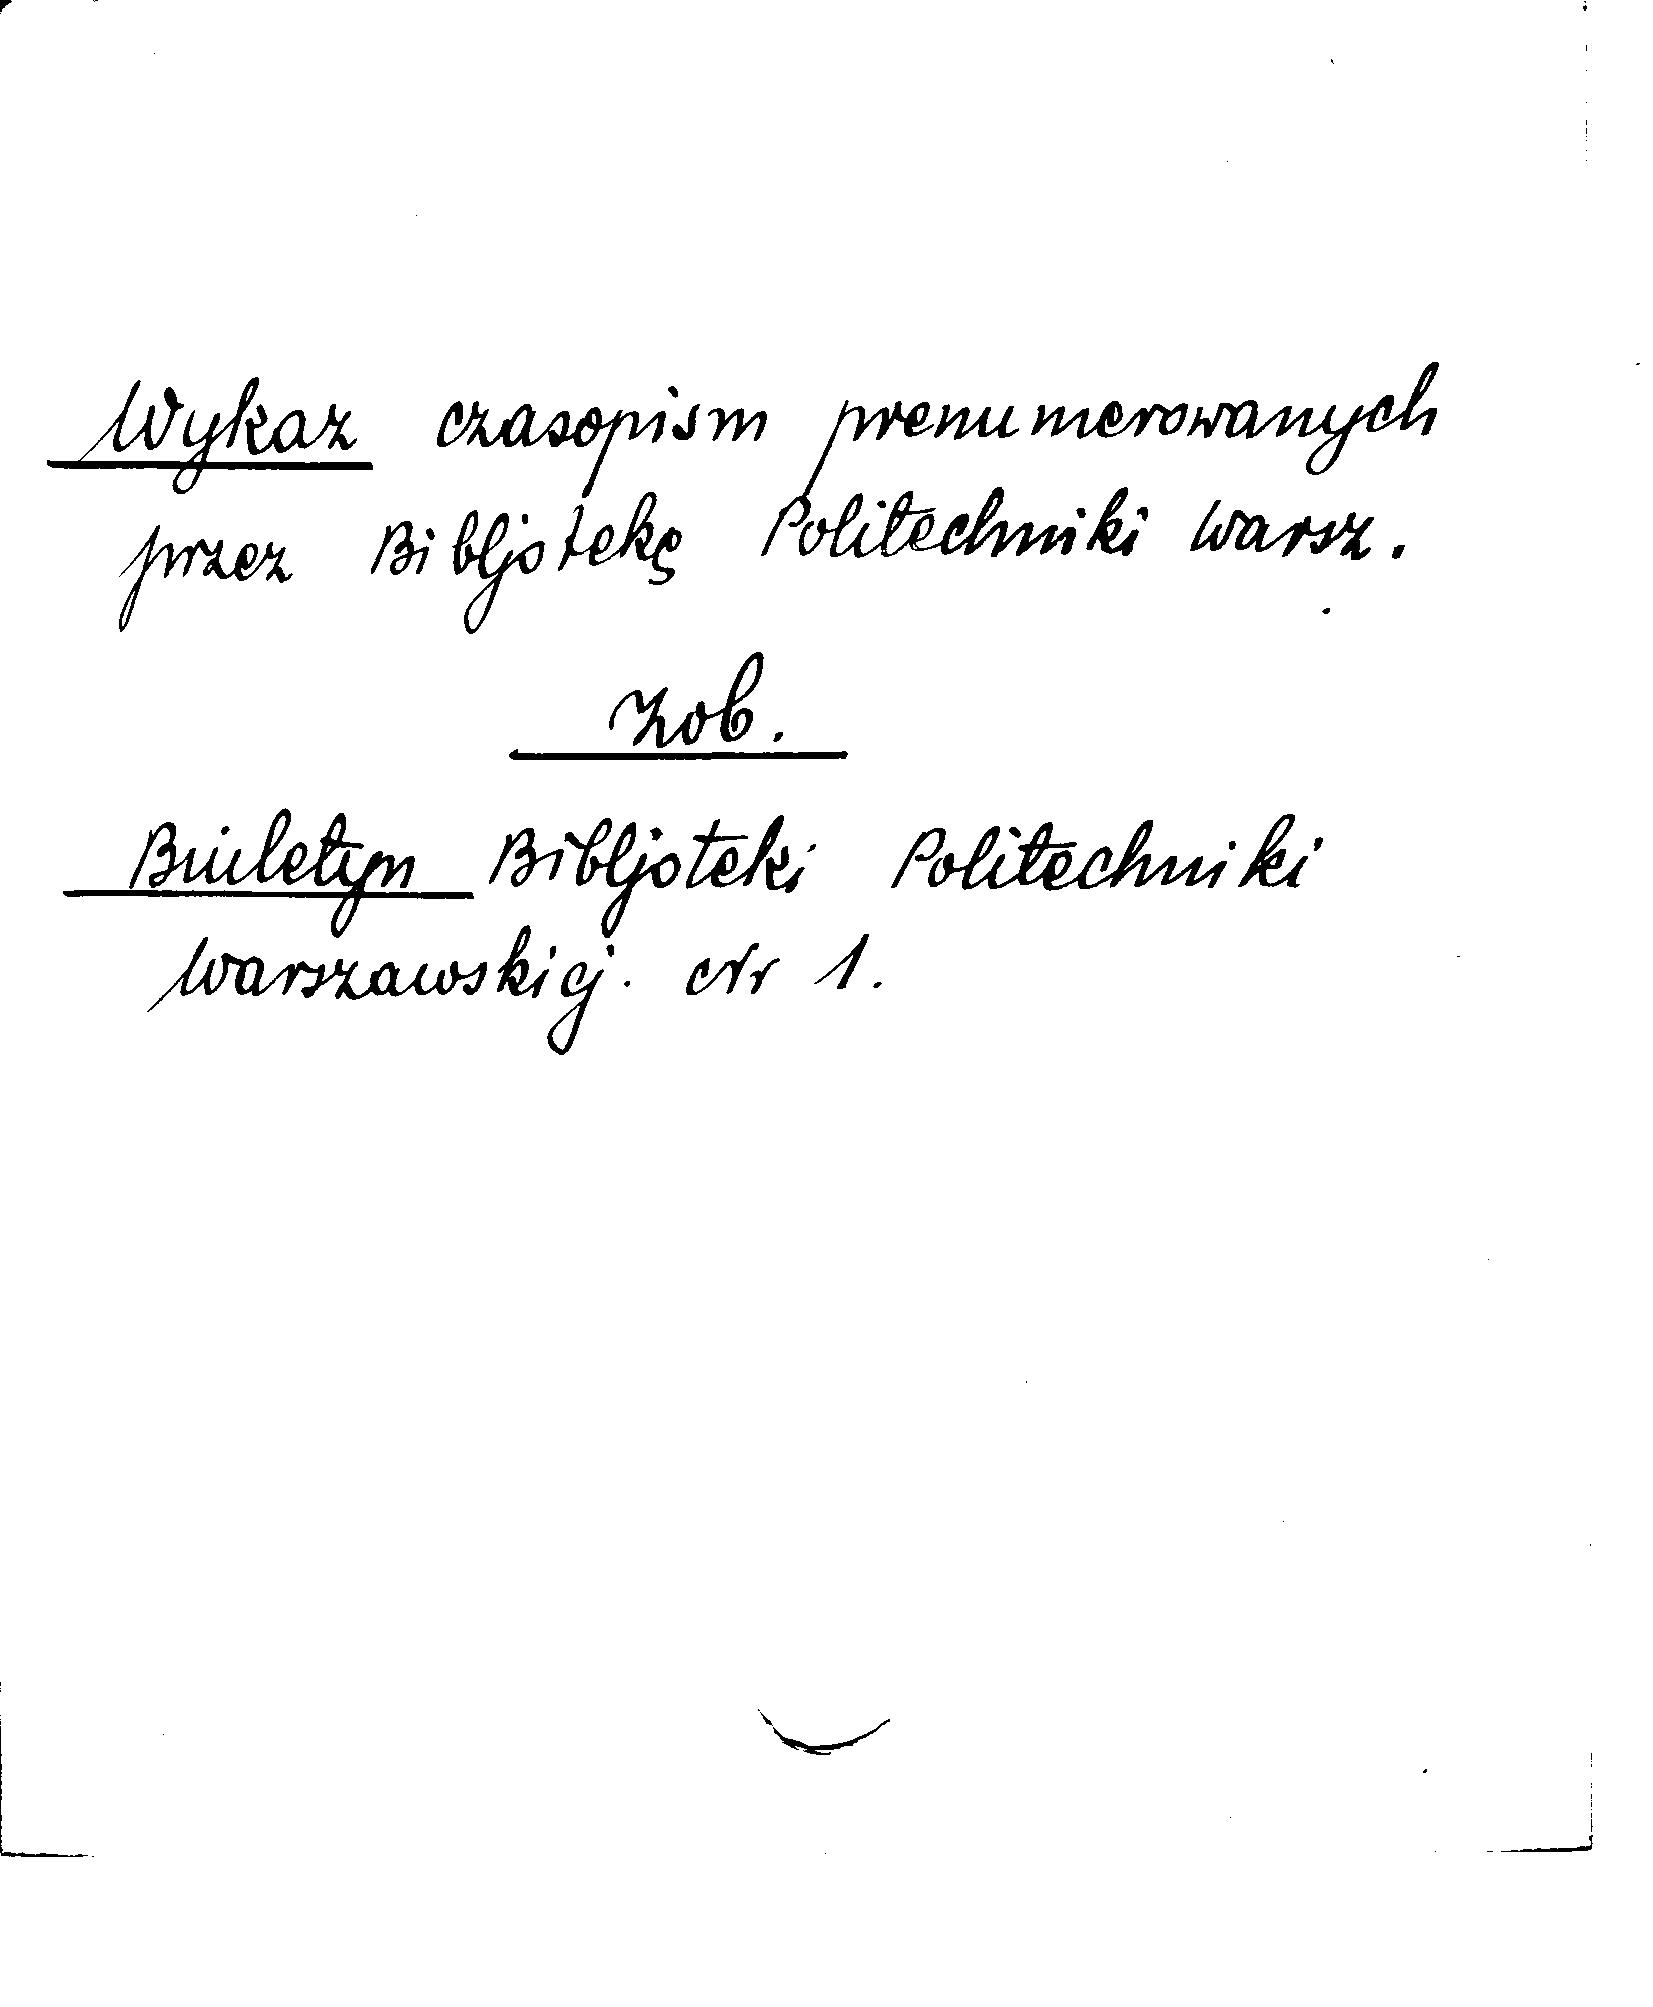 Wykaz czasopism prenumerowanych
przez Bibljotekę Politechniki Warsz.
Zob.
Biuletyn Bibljoteki Politechniki
Warszawskiej. Nr 1.